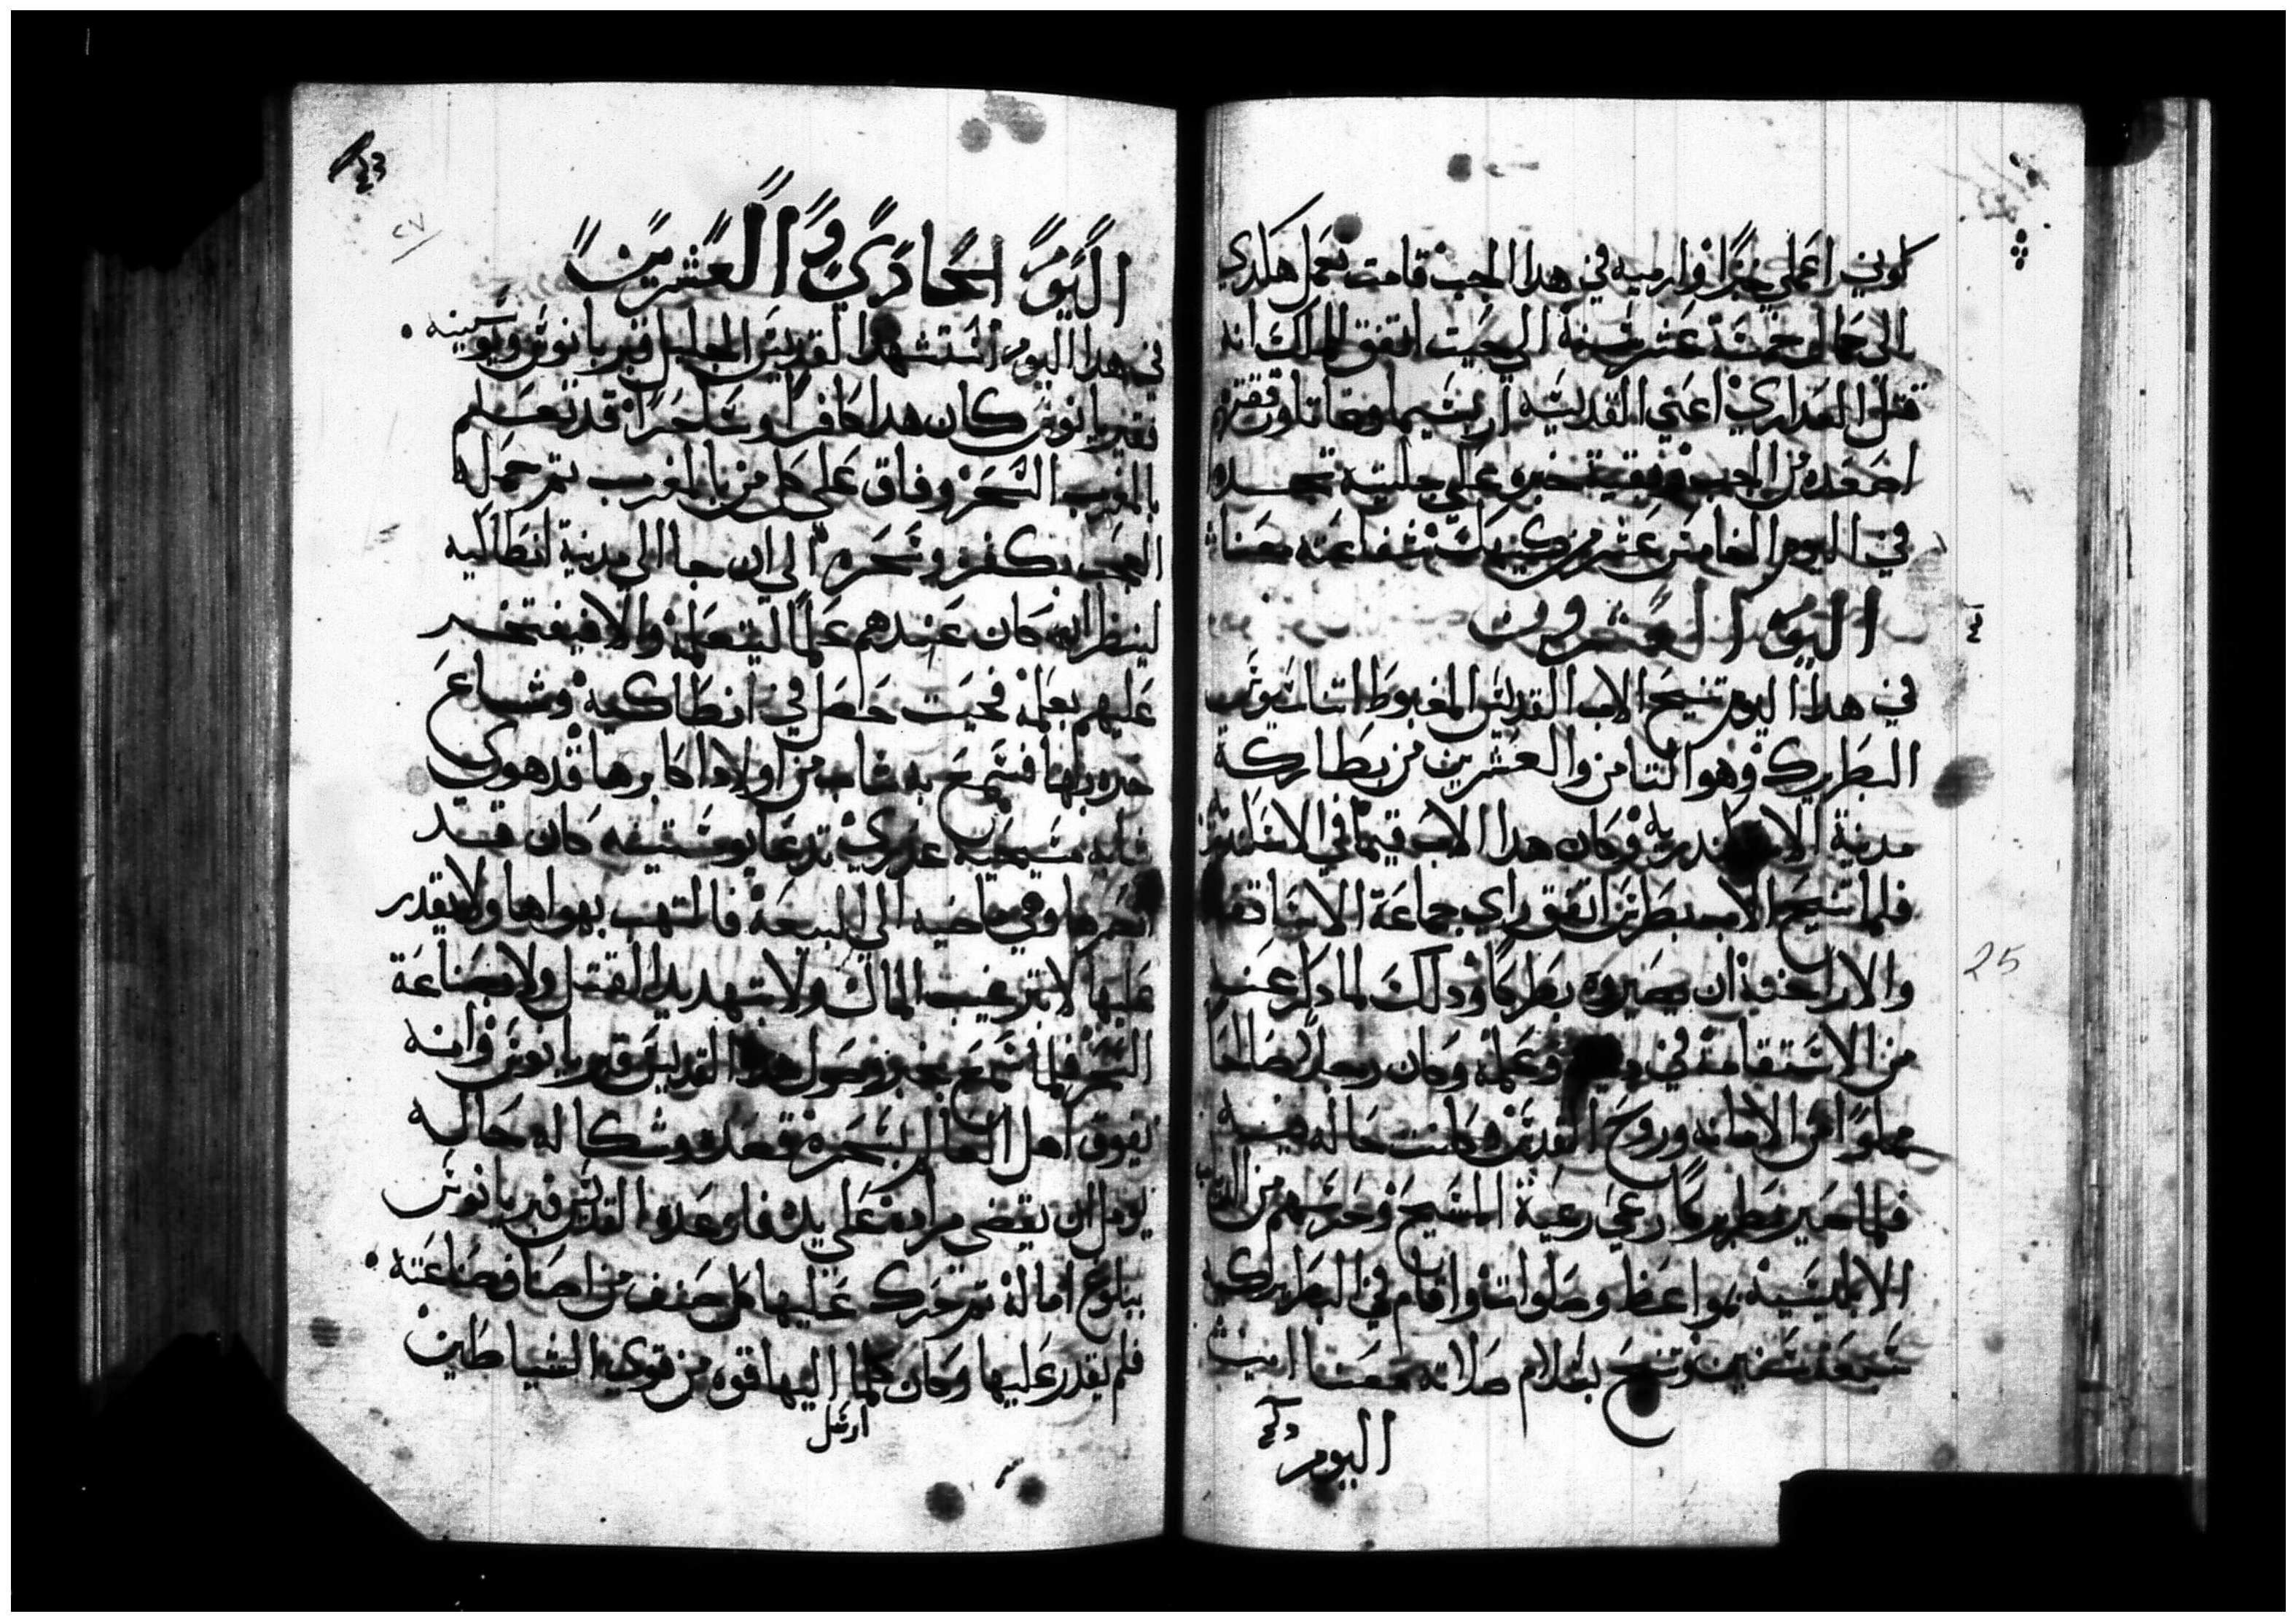 كوني اعملي خبزا وارميه في هدا الجب قامت تعمل هكدي
الى كمال خمسة عشر سنة الي حيت اتفق للملك انه
قتل العداري اعني القديسه اربسيما
اصعده من الجب وبقيت خبره علي جليته تجده
في اليوم الخامس عشر من كيهك شفاعته معنا
اليوم العشرون
في هدا اليوم تنيح الاب القديس المغبوط اتناسيوس
البطريرك وهو التامن والعشرين من بطاركة
مدينة الاسكندريه وكان هدا الاب قيما في
فلما تنيح الاب بطرس اتفق راي جماعة الاساقفه
والاراخنه ان يصيروه بطركا ودلك لما دكر عنه
من الاستقامة في دينه وعلمه وكان رجلا صالحا
مملوا من الامانه وروح القدس وكانت حاله هيده
فلما صير بطريركا رعي رعية المسيح وحرسهم من
الابليسيه بمواعظ وصلوات واقام في البطريركيه
سبعة سنين وتنيح بسلام صلاته معنا امين
اليوم
اليوم الحادي والعشرين
في هدا اليوم استشهد القديس الجليل قبريانوس ويوستينه
قبريانوس كان هدا كافرا وساحرا قد تعلم
بالمغرب السحر وفاق علي كل من بالمغرب تم حمله
العجب بكفره وسحره الي ان جا الي مدينة انطاكيه
لينظر ان كان عندهم علما ليتعلمه والا فيفتخر
عليهم بعلمه فحيت حصل في انطاكيه وشاع
خبره بها فسمع به شاب من اولاد اكابرها قد هوي
شابه مسيحيه عدري تدعا يوستينه كان قد
ابصرها وهي ماضيه الي البيعة فالتهب بهواها ولم يقدر
عليها لا بترغيب المال ولا بتهديد القتل ولا بصناعة
السحر فلما سمع بخبر وصول هدا القديس قبريانوس وانه
يفوق اهل العالم بسحره قصده وشكا له حاله
يومل ان يقضي مراده علي يده فاوعده القديس قبريانوس
ببلوغ اماله تم تحرك عليها بكل صنف من اصناف صناعته
فلم يقدر عليها وكان كلما اليها قوه من قوي الشياطين
ارسل
25